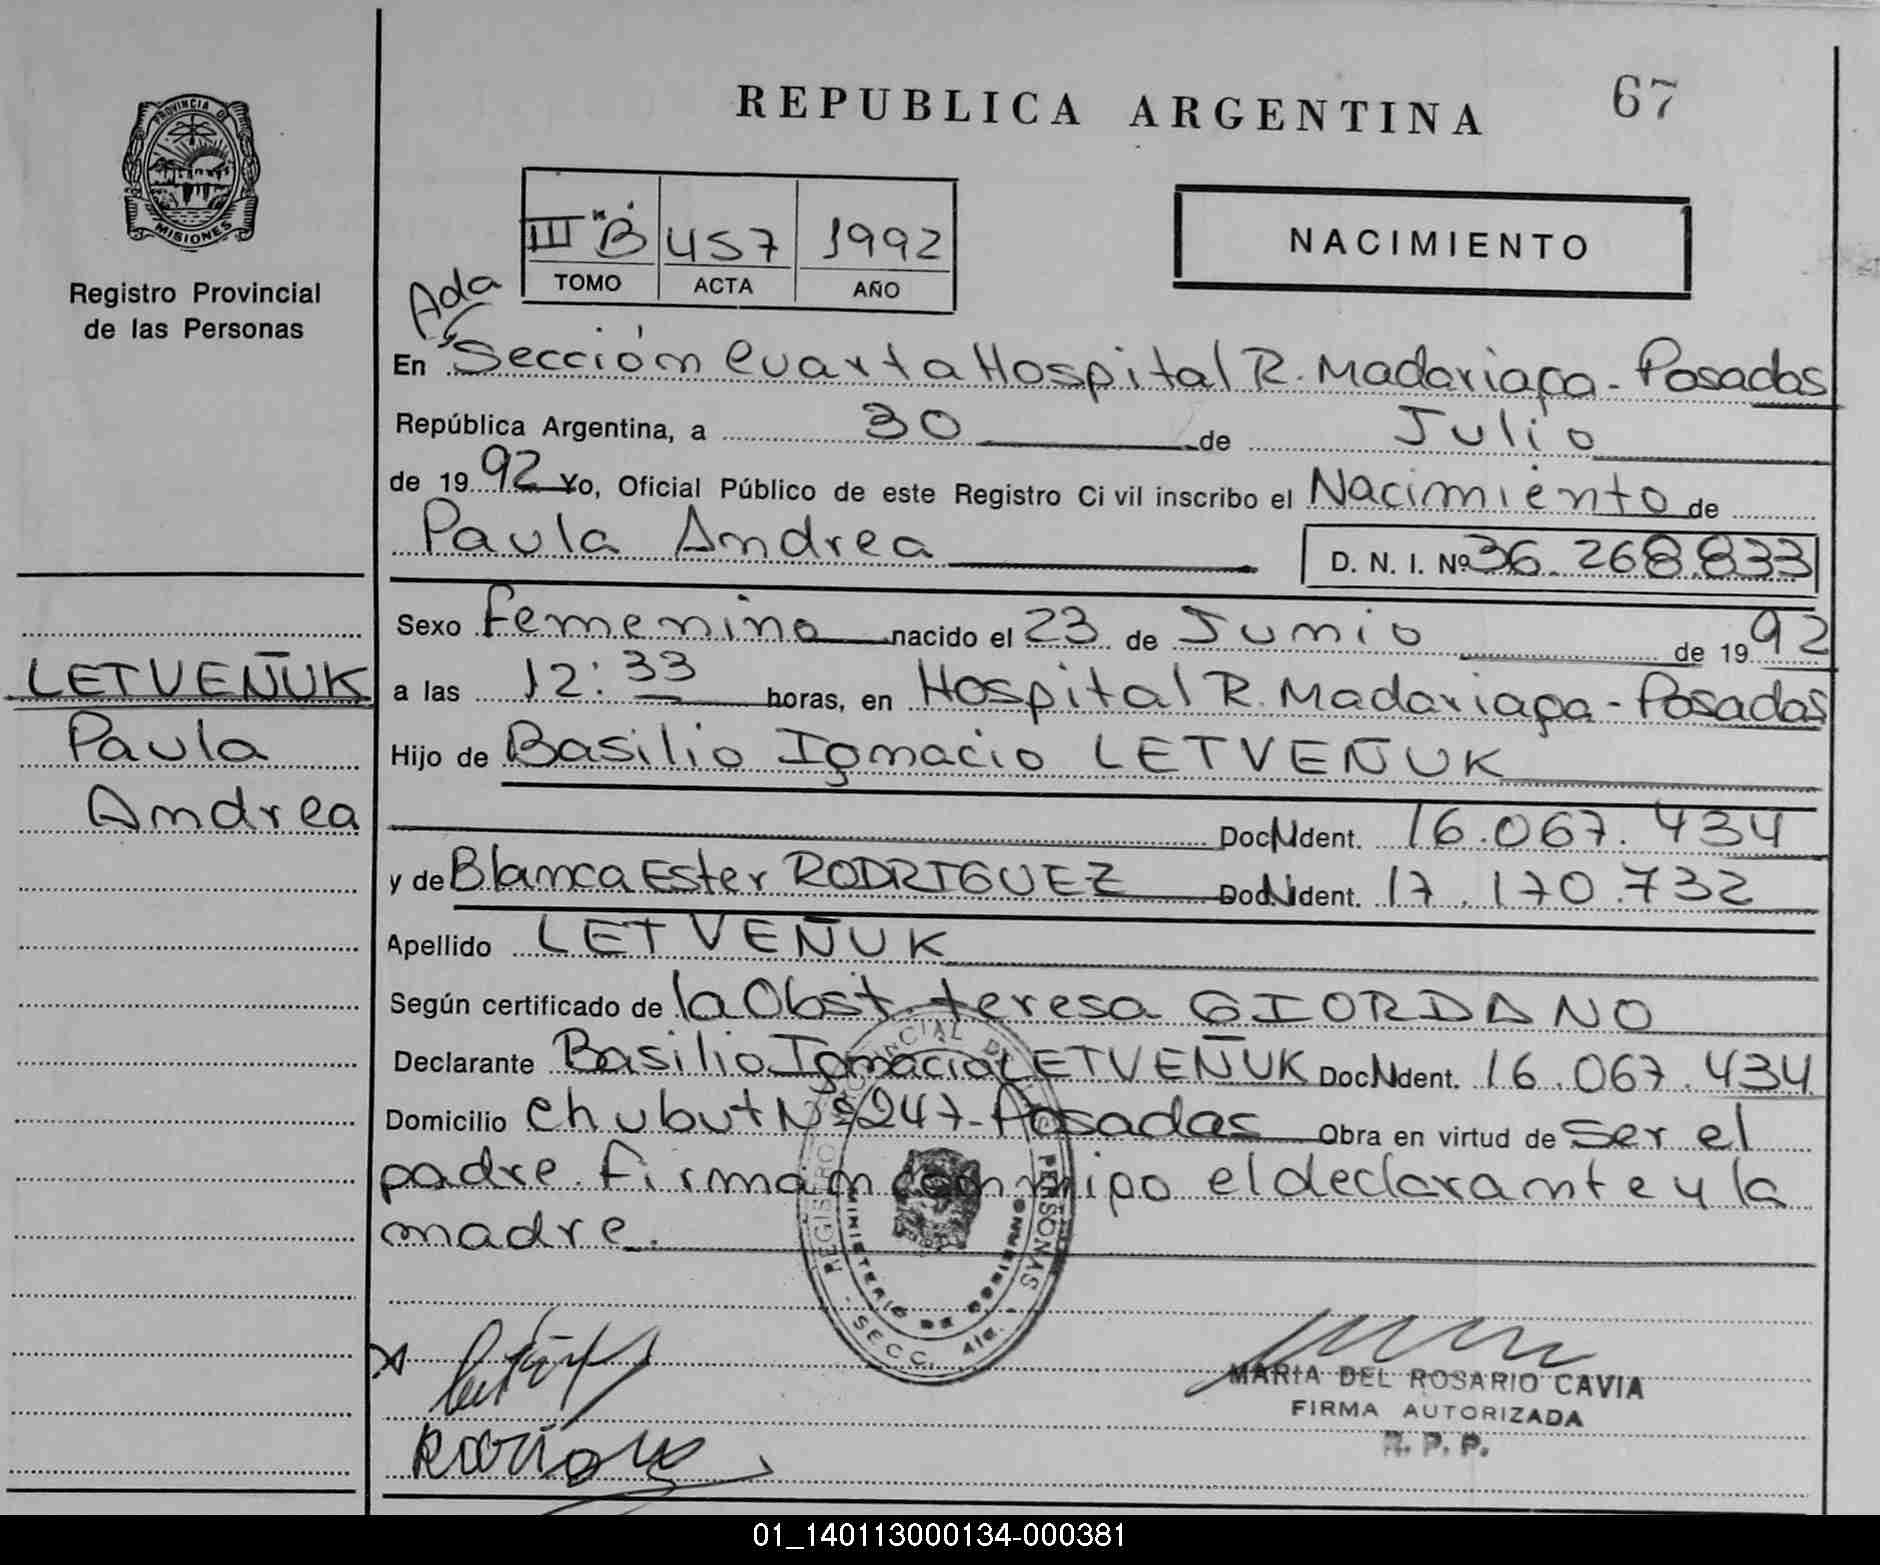 PROVINCIA DE
MISIONES
Registro Provincial
de las Personas
LETVEÑUK
Paula
Andrea
REPUBLICA ARGENTINA
67
III "B" 457 1992
TOMO ACTA AÑO
NACIMIENTO
Ada
En Sección Cuarta Hospital R. Madariaga - Posadas
República Argentina, a 30 de Julio
de 1992 Yo, Oficial Público de este Registro Civil inscribo el Nacimiento de
Paula Andrea D. N. I. Nº 36.268.833
Sexo femenino nacido el 23 de Junio de 1992
a las 12:33 horas, en Hospital R. Madariaga - Posadas
Hijo de Basilio Ignacio LETVEÑUK
Doc. Ident. 16.067.434
y de Blanca Ester RODRIGUEZ Doc. Ident. 17.170.732
Apellido LETVEÑUK
Según certificado de la Obst. teresa GIORDANO
Declarante Basilio Ignacio LETVEÑUK Doc. Ident. 16.067.434
Domicilio Chubut Nº 247 - Posadas Obra en virtud de ser el
padre. firman conmigo el declarante y la
madre.
REGISTRO PROVINCIAL DE PERSONAS
MINISTERIO DE GOBIERNO
SECC. 4ta.
MARIA DEL ROSARIO CAVIA
FIRMA AUTORIZADA
R. P. P.
01_140113000134-000381